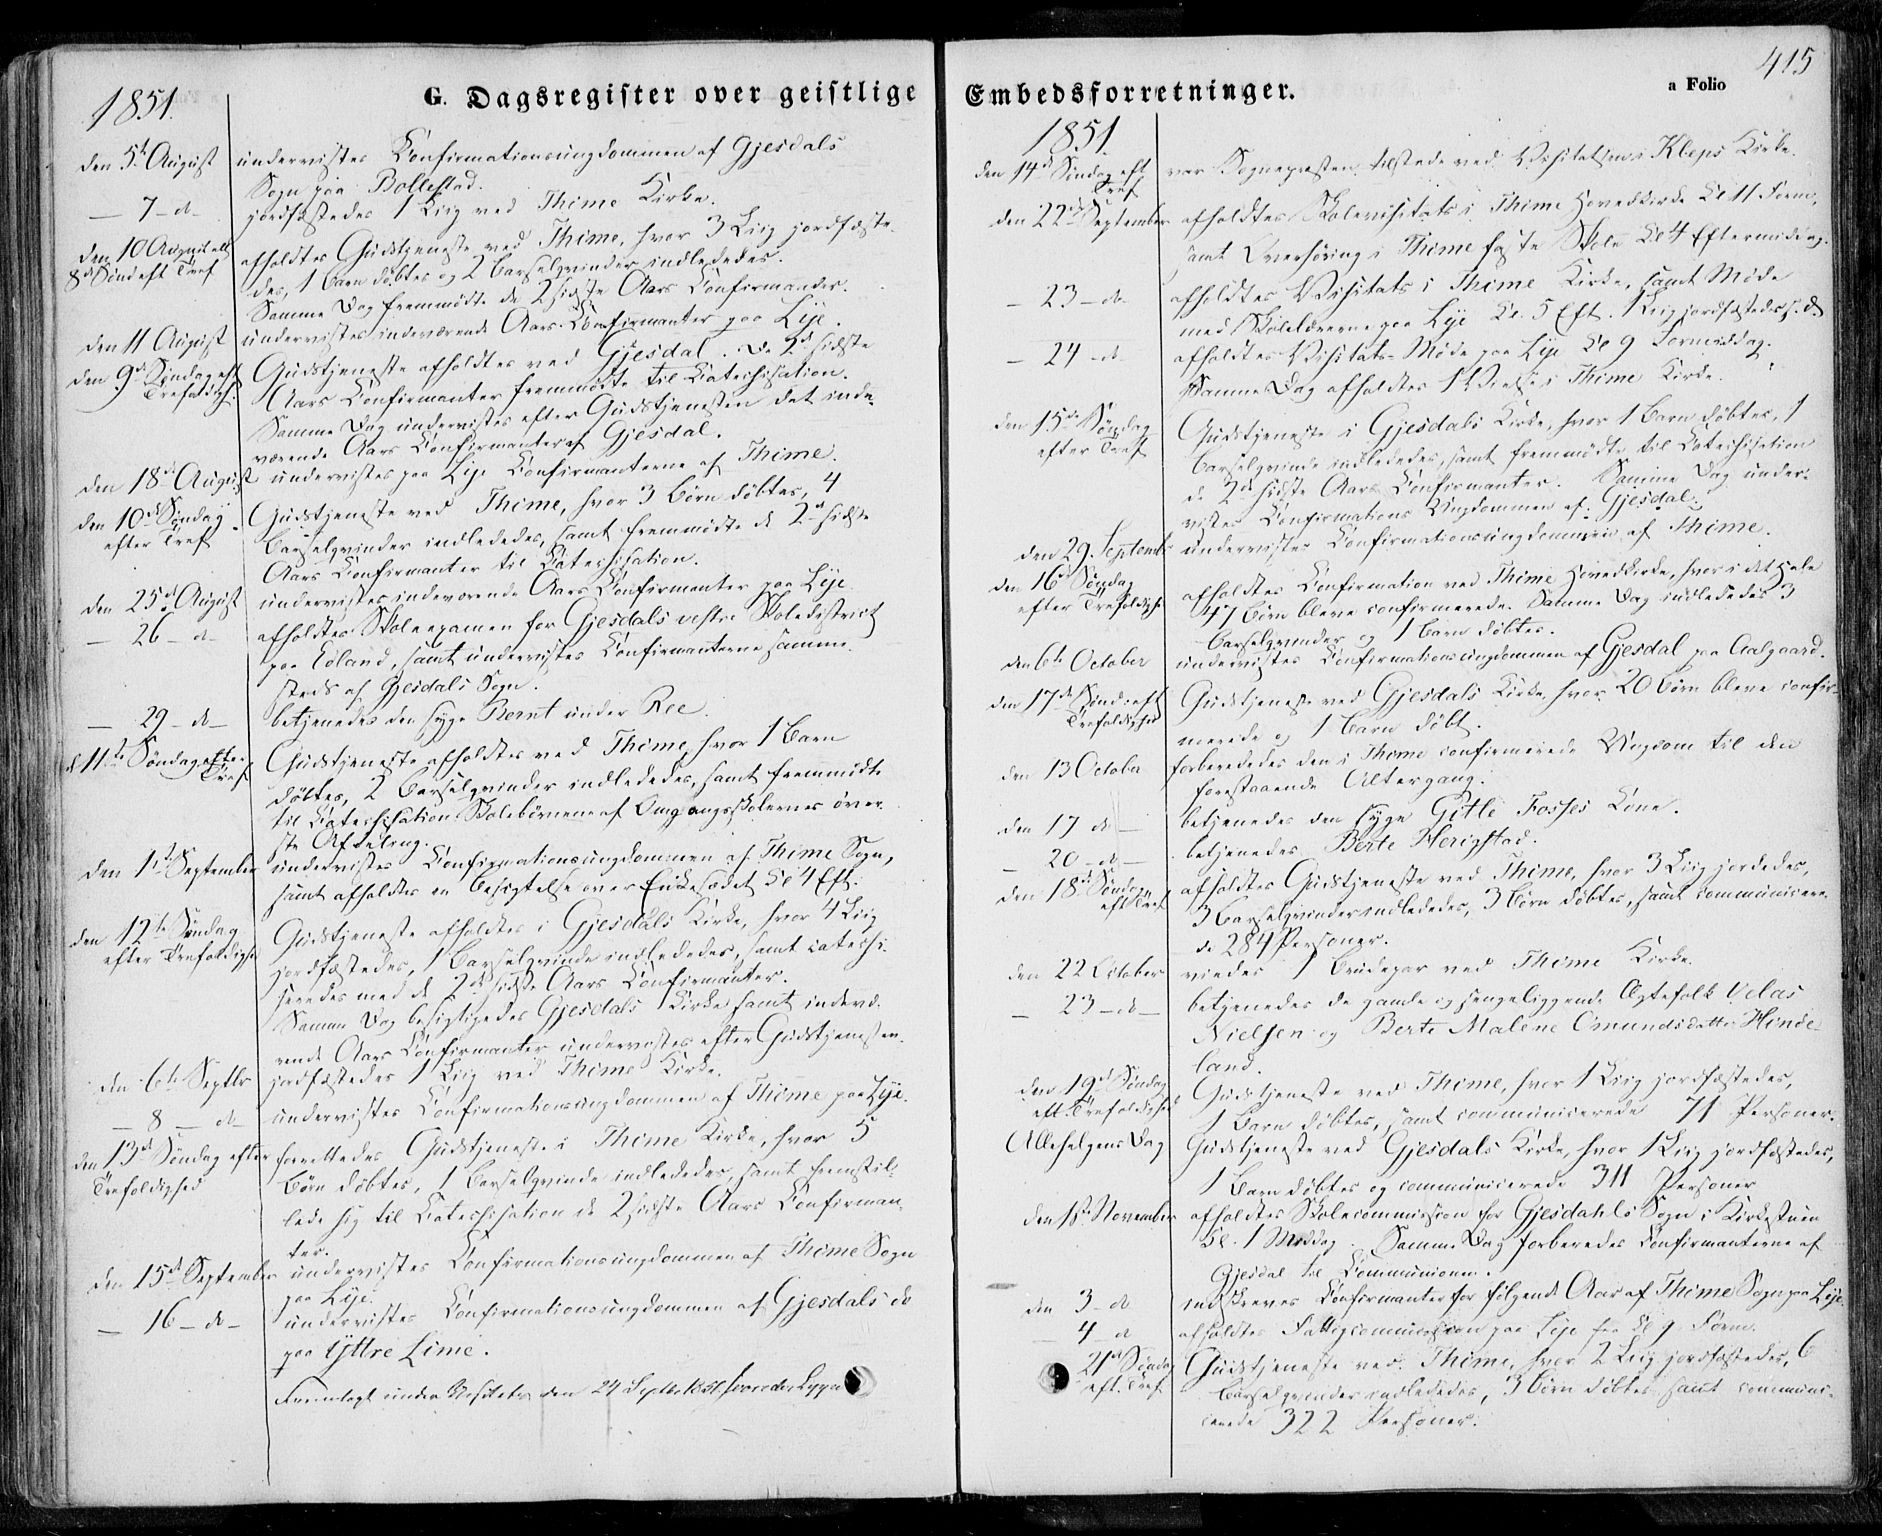 G. Dagsregister over geistlige
1851.
den 5te August undervistes Confirmationsungdommen af Gjesdals
Sogn paa Bollestad.
— 7 – d – jordfæstedes 1 Liig ved Thime Kirke.
den 10 August ell. afholdtes Gudstjeneste ved Thime, hvor 3 Liig jordfæste-
8d Sønd eft Tref des, 1 Barn døbtes og 2 Barselqvinder indlededes.
Samme Dag fremmødte de 2 sidste Aars Confirmander.
den 11 August undervistes indeværende Aars Confirmanter paa Lye.
den 9de Søndag eft Gudstjeneste afholdtes ved Gjesdal. De 2de sidste
Trefoldigh. Aars Confirmanter fremmødte til Catechisation.
Samme Dag undervistes efter Gudstjenesten det inde-
værende Aars Confirmanter af Gjesdal.
den 18de August undervistes paa Lye Confirmanterne af Thime.
den 10de Søndag Gudstjeneste ved Thime, hvor 3 Børn døbtes, 4
efter Tref Barselqvinder indlededes, samt fremmødte de 2de sidste
Aars Confirmanter til Catechisation.
den 25de August undervistes indeværende Aars Confirmanter paa Lye
— 26 – d – afholdtes Skoleexamen for Gjesdals vestre Skoledistrict
paa Edland, samt undervistes Confirmanterne samme-
steds af Gjesdals Sogn.
— 29 – d – betjenedes den syge Bernt under Ree.
d 11te Søndag efter Gudstjeneste afholdtes ved Thime, hvor 1 Barn
Tref døbtes, 2 Barselqvinder indlededes, samt fremmødte
til Catechisation Skolebørnene af Omgangsskolernes øver-
ste Afdeling.
den 1ste September undervistes Confirmationsungdommen af Thime Sogn,
samt afholdtes en Besigtelse over Enkesædet Kl 4 Eft.
den 12te Søndag Gudstjeneste afholdtes i Gjesdals Kirke, hvor 4 Liig
efter Trefoldigh jordfæstedes, 1 Barselqvinde indlededes, samt catechi-
seredes med de 2de sidste Aars Confirmanter.
Samme Dag besigtigedes Gjesdals Kirke samt indevæ-
rende Aars Confirmanter undervistes efter Gudstjenesten.
den 6te Septbr jordfæstedes 1 Liig ved Thime Kirke.
— 8 — d – undervistes Confirmationsungdommen af Thime paa Lye.
den 13de Søndag efter forrettedes Gudstjeneste i Thime Kirke, hvor 5
Trefoldighed Børn døbtes, 1 Barselqvinde indlededes, samt fremstil-
lede sig til Catechisation de 2 sidste Aars Confirman-
ter.
den 15de September undervistes Confirmationsungdommen af Thime Sogn
paa Lye.
— 16 – do – undervistes Confirmationsungdommen af Gjesdals do
paa Yttre Lime.
Fremlagt under Visitats den 24 Septbr 1851
Embedsforretninger.
a Folio
415
1851.
den 14d Søndag eft var Sognepræsten tilstede ved Visitatsen i Kleps Kirke.
Tref
den 22de September afholdtes Skolevisitats i Thime Hovedkirke Kl 11 Form,
samt Overhøring i Thime faste Skole Kl 4 Eftermiddag.
— 23 – do – afholdtes Visitats i Thime Kirke, samt Møde
med Skolelærerne paa Lye Kl. 5 Eft. 1 Liig jordfæstedes s. d.
— 24 – do – afholdtes Visitats-Møde paa Lye Kl 9 Formiddag.
Samme Dag afholdtes 1 Vielse i Thime Kirke.
den 15de Søndag Gudstjeneste i Gjesdals Kirke, hvor 1 Barn døbtes, 1
efter Tref Barselqvinde indlededes, samt fremmødte til Catechisation
de 2de sidste Aars Confirmanter. Samme Dag under-
vistes Confirmations Ungdommen af Gjesdal.
den 29. Septembr undervistes Confirmationsungdommen af Thime.
den 16d Søndag afholdtes Confirmation ved Thime Hovedkirke, hvor i det Hele
efter Trefoldighe 47 Børn bleve confirmerede. Samme Dag indlededes 3
Barselqvinder og 1 Barn døbtes.
den 6te October undervistes Confirmationsungdommen af Gjesdal paa Aalgaard.
den 17de Sønd: eft Gudstjeneste ved Gjesdals Kirke, hvor 20 Børn bleve confir-
Trefoldighed merede og 1 Barn døbt.
den 13 October forberededes den i Thime confirmerede Ungdom til den
forestaaende Altergang.
den 17 do — betjenedes den syge Gitle Fosses Kone.
— 20 – do — betjenedes Berte Herigstad.
den 18d Søndag afholdtes Gudstjeneste ved Thime, hvor 3 Liig jordedes,
eft Tref 3 Barselqvinder indlededes, 3 Børn døbtes, samt communicere-
de 284 Personer.
den 22 October viedes 1 Brudepar ved Thime Kirke.
— 23 – do – betjenedes de gamle og sengeliggende Ægtefolk Velas
Nielsen og Berte Malene Omundsdatter Hinde-
land.
den 19d Søndag Gudstjeneste ved Thime, hvor 1 Liig jordfæstedes,
eft. Trefoldighed 1 Barn døbtes, samt communicerede 71 Personer.
Allehelgens Dag Gudstjeneste ved Gjesdals Kirke, hvor 1 Liig jordfæstedes,
1 Barn døbtes og communicerede 311 Personer
den 1ste November afholdtes Skolecommission for Gjesdahls Sogn i Kirkestuen
Kl. 1 Middag. Samme Dag forberedes Confirmanterne af
Gjesdal til Communionen.
den 3 – do indskreves Confirmanter for følgende Aar af Thime Sogn paa Lye.
— 4 – d afholdtes Fattigcommission paa Lye fra Kl 9 Form.
21d Søndag Gudstjeneste ved Thime, hvor 2 Liig jordfæstedes, 6
eft. Tref Barselqvinder indlededes, 3 Børn døbtes samt communi-
cerede 322 Personer.